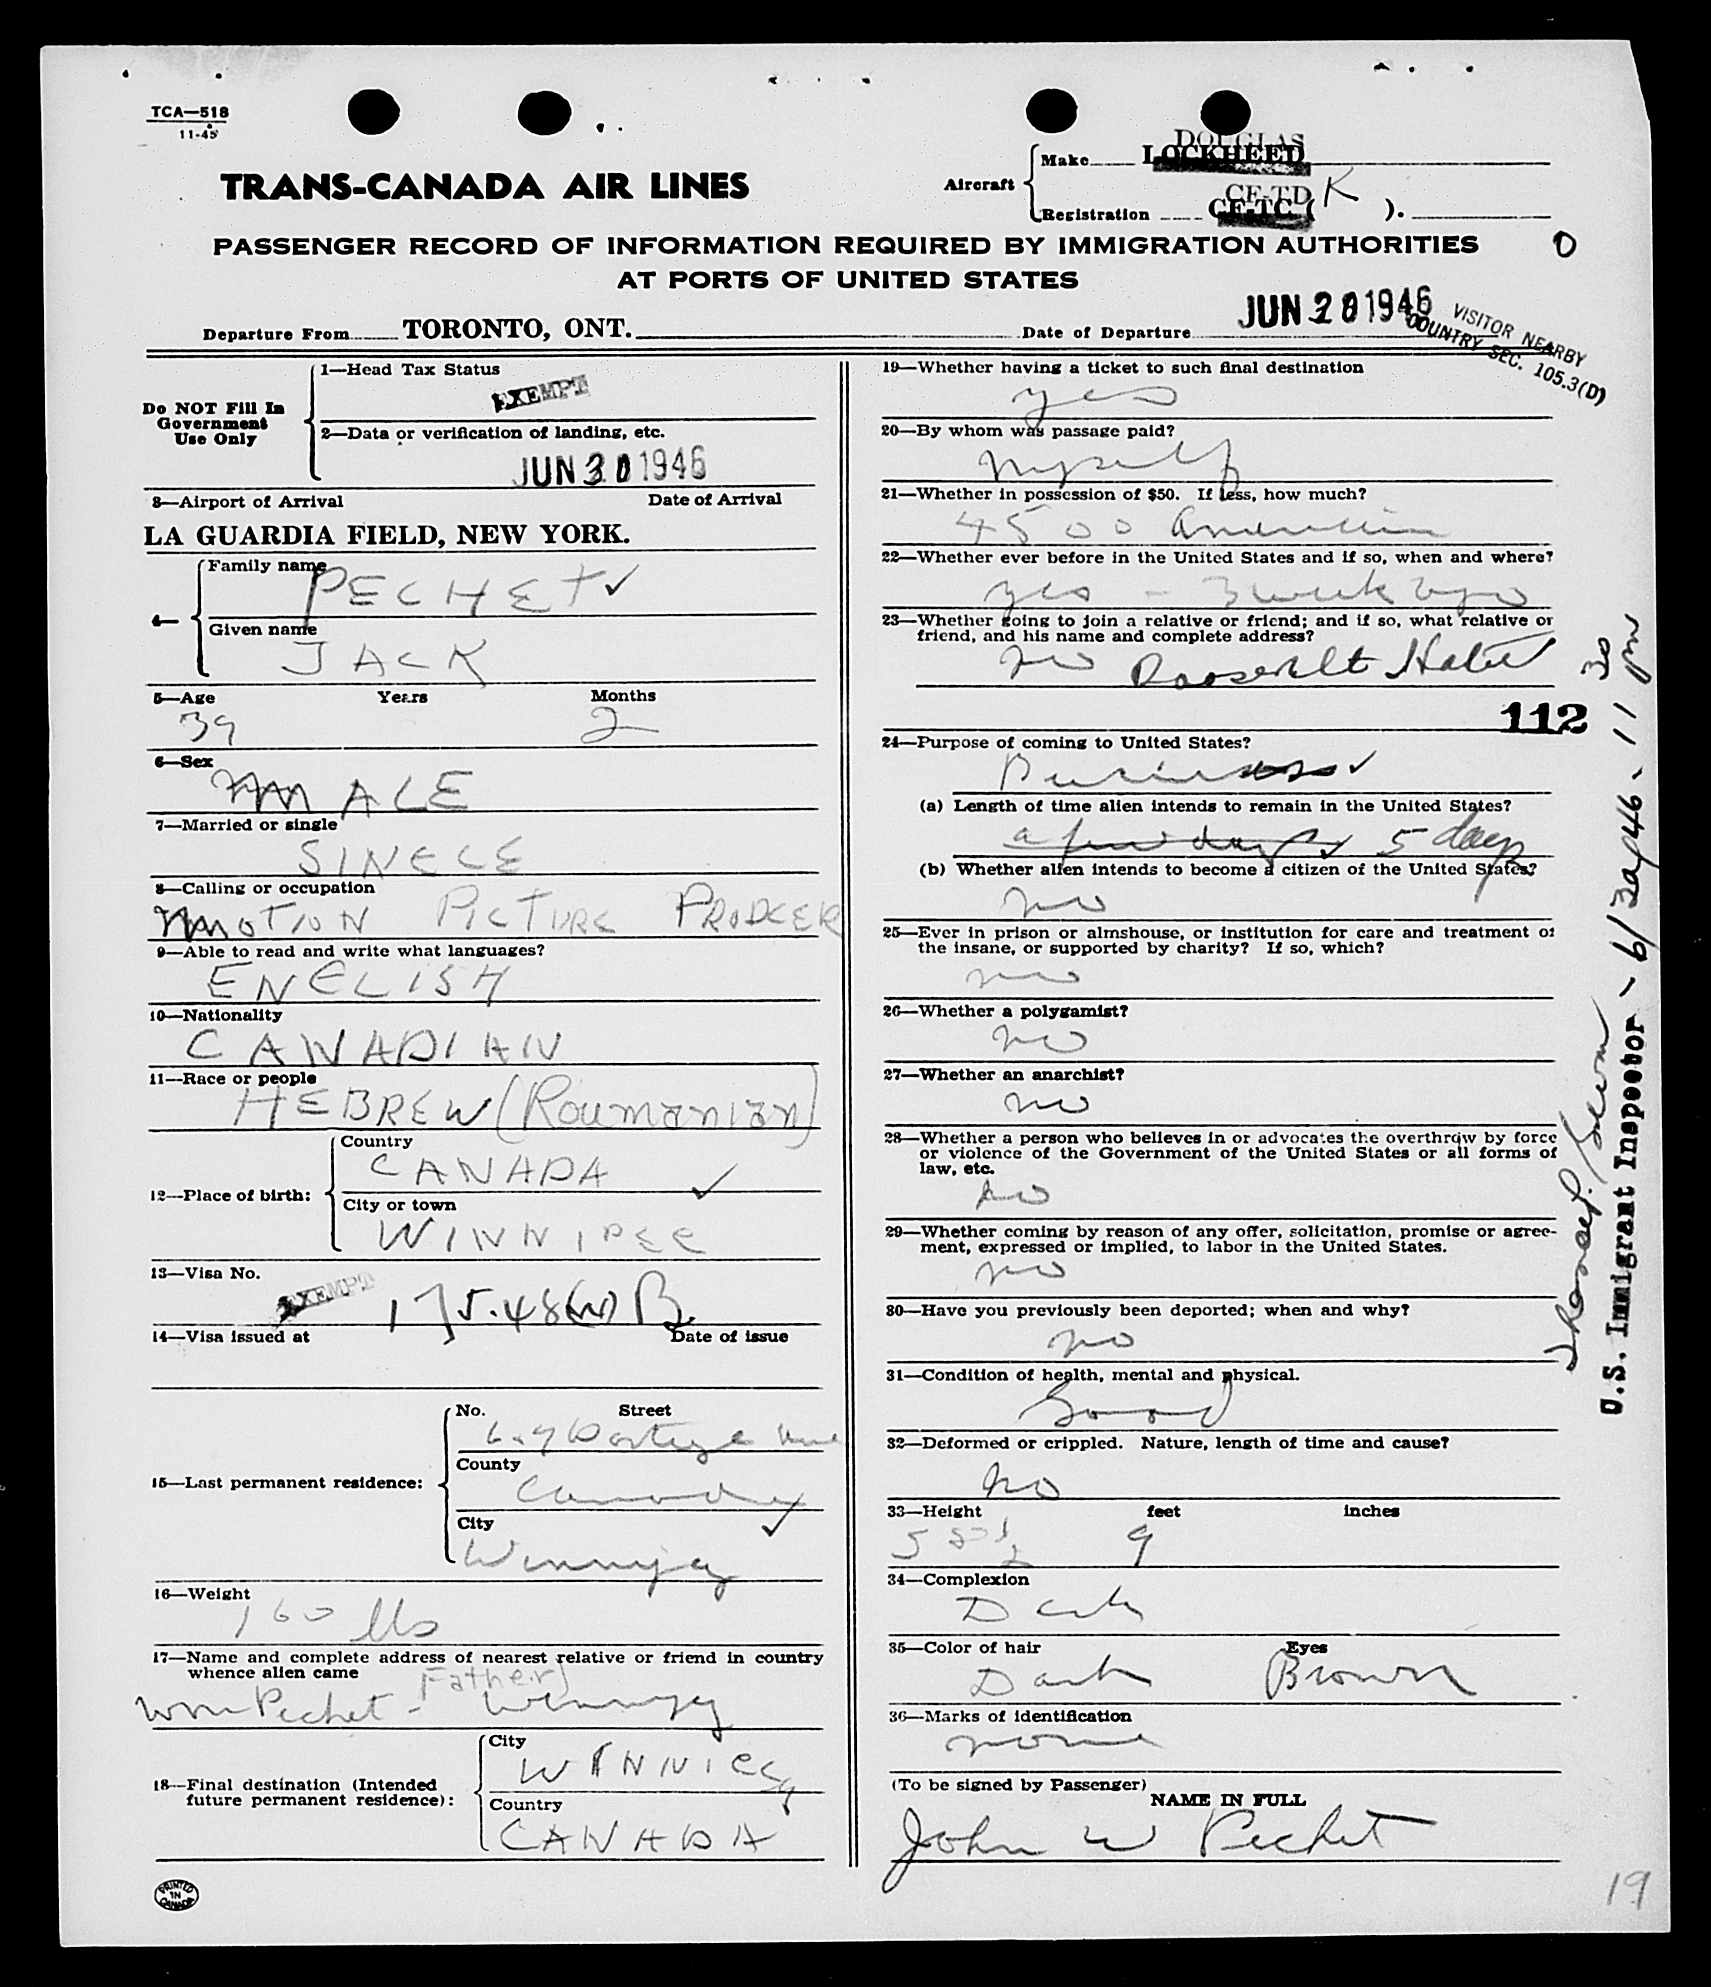 TCA—518
11-45
TRANS-CANADA AIR LINES
Aircraft
Make
DOUGLAS
LOCKHEED
Registration
CF-TD K
CF-TC ( ).
PASSENGER RECORD OF INFORMATION REQUIRED BY IMMIGRATION AUTHORITIES
AT PORTS OF UNITED STATES
O
Departure From TORONTO, ONT.
Date of Departure JUN 20 1946
VISITOR NEARBY
COUNTRY SEC. 105.3(D)
Do NOT Fill In
Government
Use Only
1—Head Tax Status
EXEMPT
2—Data or verification of landing, etc.
JUN 30 1946
3—Airport of Arrival Date of Arrival
LA GUARDIA FIELD, NEW YORK.
4—
Family name
PECHET ✓
Given name
JACK
5—Age Years Months
39 2
6—Sex
MALE
7—Married or single
SINGLE
8—Calling or occupation
MOTION PICTURE PRODCER
9—Able to read and write what languages?
ENGLISH
10—Nationality
CANADIAN
11—Race or people
HEBREW (Roumanian)
12—Place of birth:
Country
CANADA ✓
City or town
WINNIPEG
13—Visa No.
EXEMPT 175.48(W) B.
14—Visa issued at Date of issue
15—Last permanent residence:
No. Street
Portage
County
Canada
City ✓
Winnipeg
16—Weight
160 lbs
17—Name and complete address of nearest relative or friend in country
whence alien came
Father)
Wm Pechet - Winnipeg
18—Final destination (Intended
future permanent residence):
City
WINNIPEG
Country
CANADA
PRINTED
IN
CANADA
19—Whether having a ticket to such final destination
yes
20—By whom was passage paid?
Myself
21—Whether in possession of $50. If less, how much?
4500 American
22—Whether ever before in the United States and if so, when and where?
yes - 3 week ago
23—Whether going to join a relative or friend; and if so, what relative or
friend, and his name and complete address?
no Roosevelt Hotel
112
24—Purpose of coming to United States?
Business ✓
(a) Length of time alien intends to remain in the United States?
a few days ✓ 5 days
(b) Whether alien intends to become a citizen of the United States?
no
25—Ever in prison or almshouse, or institution for care and treatment of
the insane, or supported by charity? If so, which?
no
26—Whether a polygamist?
no
27—Whether an anarchist?
no
28—Whether a person who believes in or advocates the overthrow by force
or violence of the Government of the United States or all forms of
law, etc.
no
29—Whether coming by reason of any offer, solicitation, promise or agree-
ment, expressed or implied, to labor in the United States.
no
30—Have you previously been deported; when and why?
no
31—Condition of health, mental and physical.
Good
32—Deformed or crippled. Nature, length of time and cause?
no
33—Height feet inches
5 9
34—Complexion
Dark
35—Color of hair Eyes
Dark Brown
36—Marks of identification
none
(To be signed by Passenger)
NAME IN FULL
John W Pechet
U.S. Immigrant Inspector - 6/30/46 - 11 30 pm
19